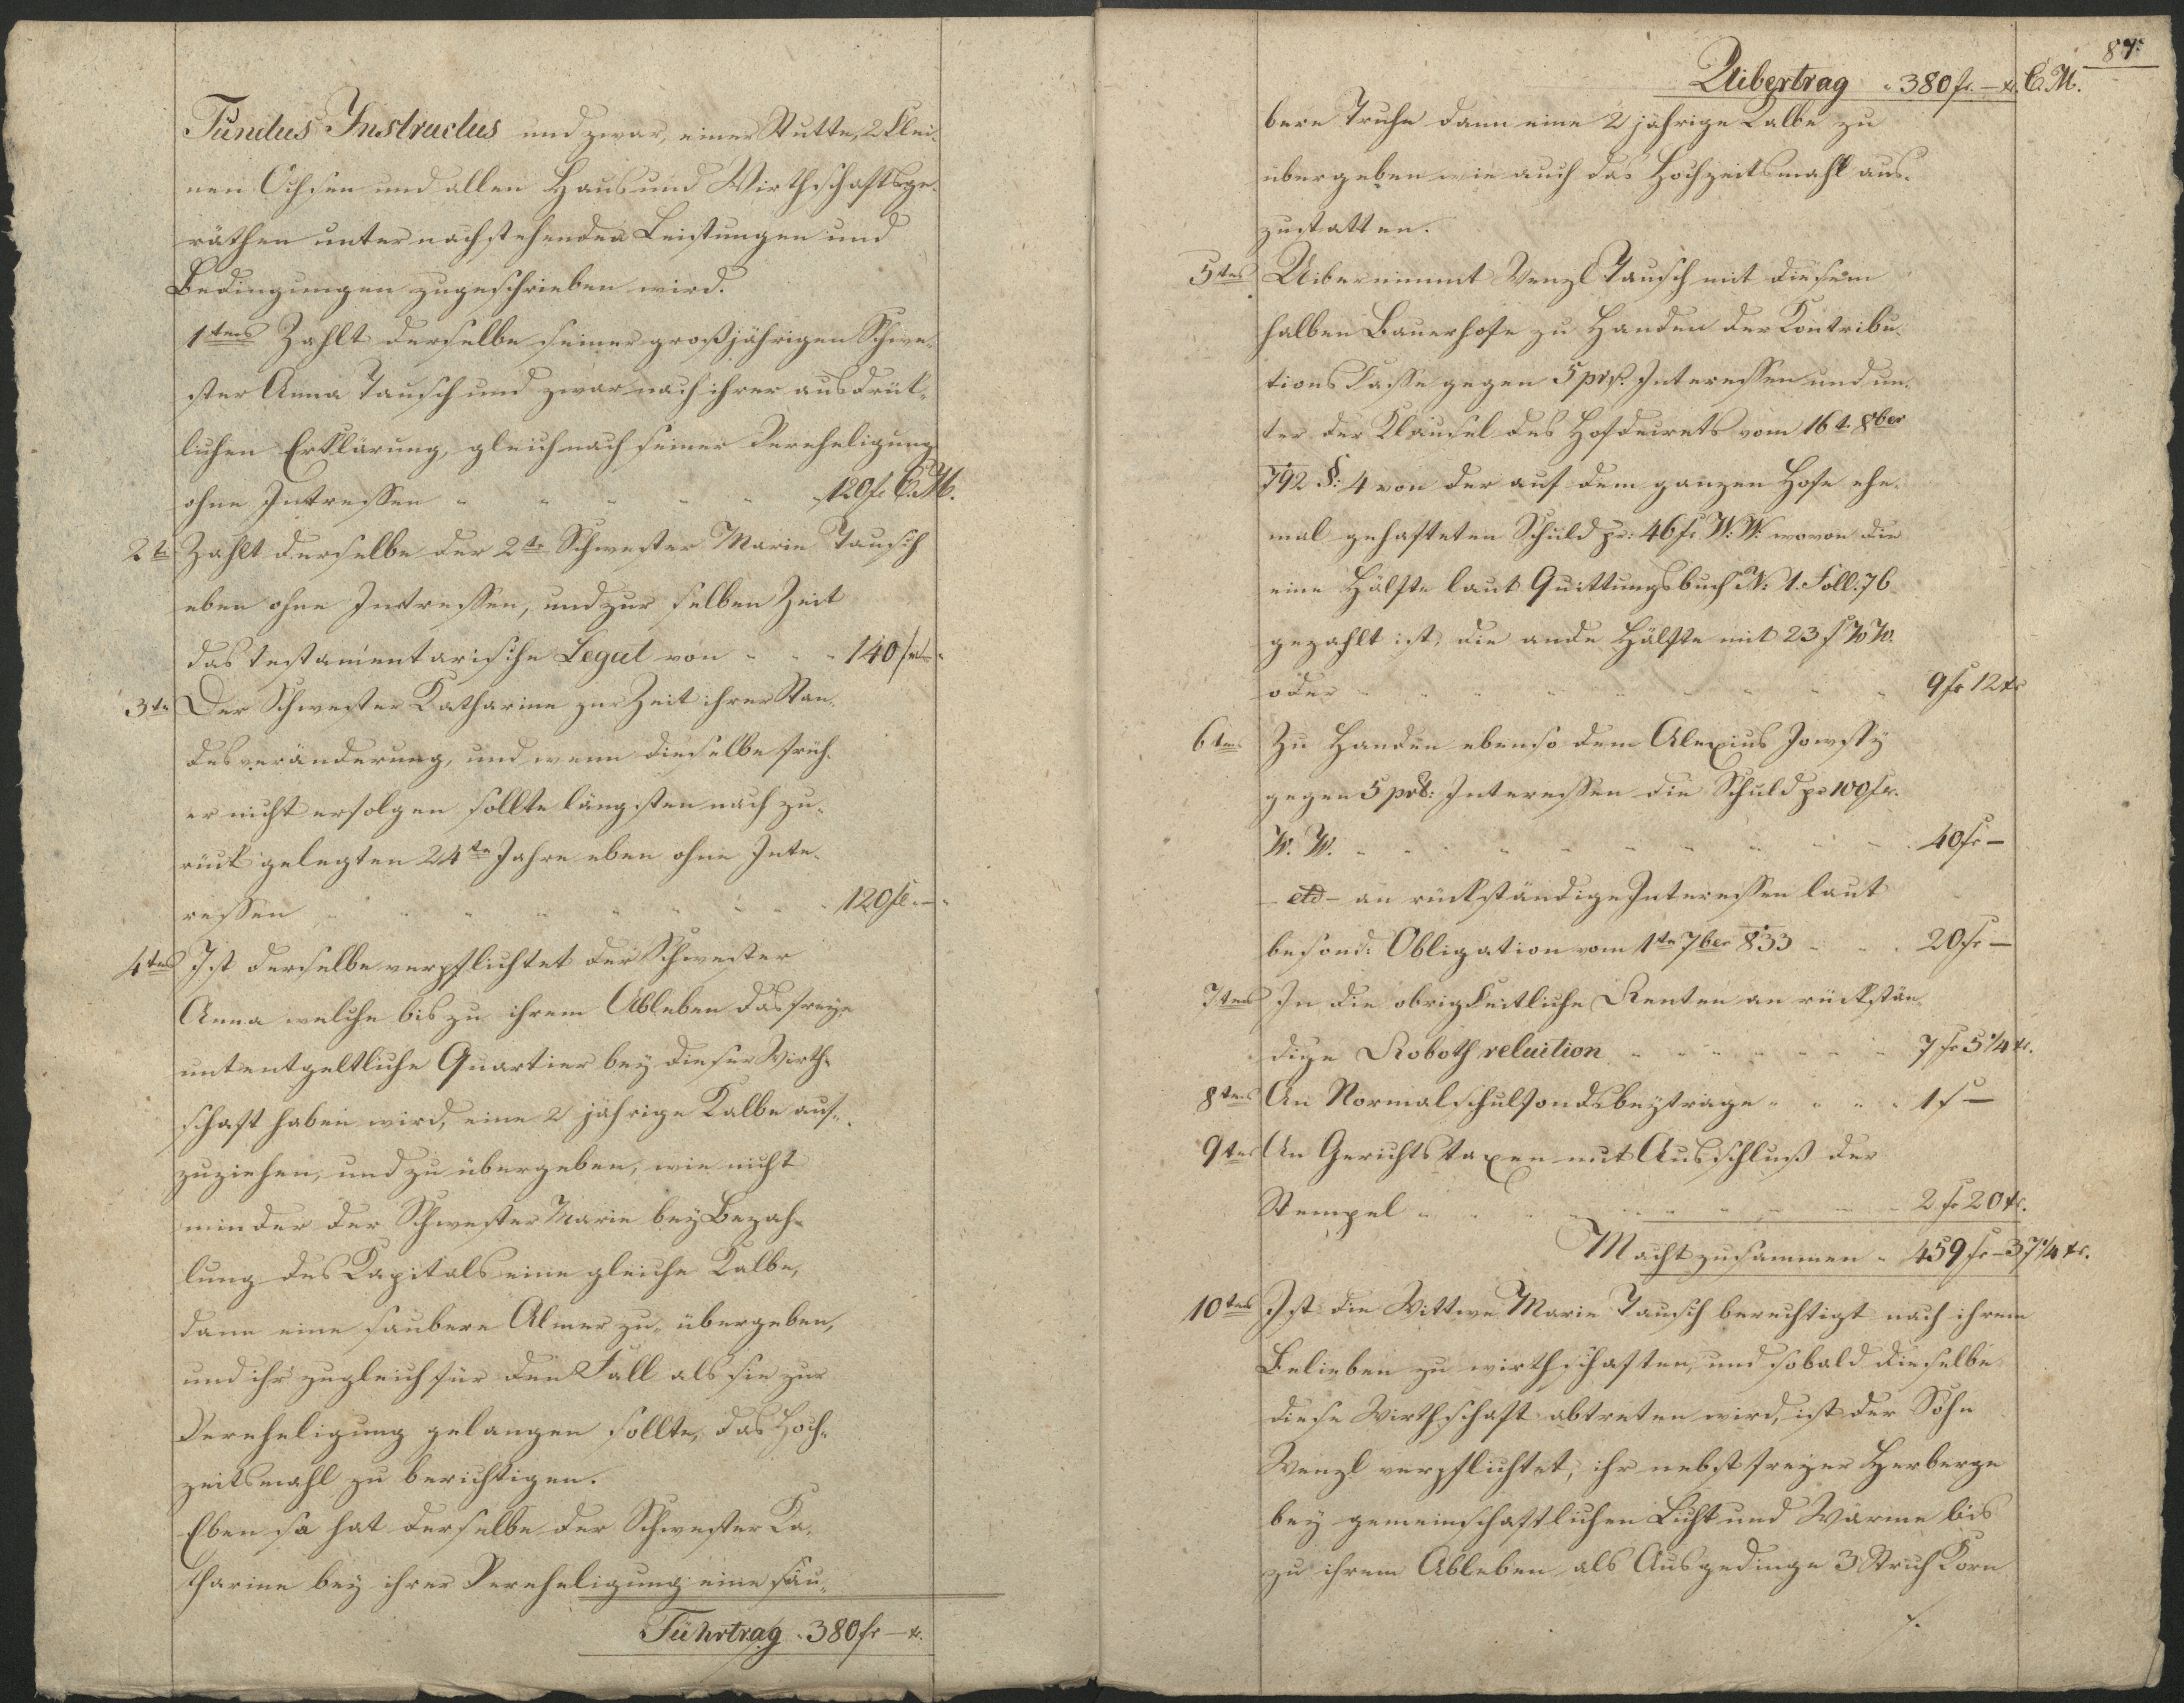 Fundus Instructus und zwar, einer Stutte, 2 klei-
nen Ochsen und allen Haus und Wirthschaftsge-
räthen unter nachstehenden Leistungen und
Bedingungen zugeschrieben wird.
1tens Zahlt derselbe seiner großjährigen Schwe-
ster Anna Tausch und zwar nach ihrer ausdrük-
lichen Erklärung, gleich nach seiner Vereheligung
ohne Intressen " " " " " 120 fr C. M.
2te Zahlt derselbe der 2te Schwester Marie Tausch
eben ohne Intressen, und zur selben Zeit
das testamentarische Legat von " " " 140 fr —
3te Der Schwester Katharine zur Zeit ihrer Stan-
desveränderung, und wenn dieselbe früh-
er nicht erfolgen sollte längsten nach zu-
rück gelegten 24te Jahre eben ohne Inte-
ressen " " " " " " " " 120 fl —
4tens Ist derselbe verpflichtet der Schwester
Anna welche bis zu ihrem Ableben das freye
untentgeltliche Quartier bey dieser Wirth-
schaft haben wird, eine 2 jährige Kalbe auf-
zuziehen, und zu übergeben, wie nicht
minder der Schwester Marie bey Bezah-
lung des Kapitals eine gleiche Kalbe,
dann eine saubere Almer zu übergeben,
und ihr zugleich für den Fall als sie zur
Vereheligung gelangen sollte, das Hoch-
zeitsmahl zu berichtigen.
Eben so hat derselbe der Schwester Ka-
tharine bey ihrer Verehligung eine sau-
Führtrag " 380 fr — x.
87.
Uibertrag " 380 fr — x. C. M.
bere Truhe dann eine 2 jährige Kalbe zu
übergeben wie auch das Hochzeitsmahl aus-
zustatten.
5tens Uibernimmt Wenzl Tausch mit diesem
halben Bauerhofe zu Handen der Kontribu-
tions Casse gegen 5 prz. Interessen und un-
ter der Klausel des Hofdecrets vom 16t. 8ber
792 §: 4 von der auf dem ganzen Hofe ehe-
mal gehafteten Schuld pr: 46 fr W: W: wovon die
eine Hälfte laut Quittungsbuch N: 1. Foll. 76
gezahlt ist, die ande Hälfte mit 23 f W W.
oder " " " " " " " " 9 fr 12 xr
6tens Zu Handen ebenso dem Alexius
gegen 5 prz: Interessen die Schuld pr 100 fr.
W. W. " " " " " " " " 40 fr —
— etto — an rückständige Interessen laut
besond: Obligation vom 1te 7ber 833 " " " 20 fr —
7tens In die obrigkeitliche Renten an rückstän-
dige Roboth reluition " " " " " " 7 fr 5 1/4 xr.
8tens An Normalschulfondsbeyträge " " " " 1 f —
9tens An Gerichtstaxen mit Ausschluß der
Stempel " " " " " " " " 2 fr 20 xr.
Macht zusammen " 459 fr — 37 1/4 xr.
10tens Ist die Wittwe Marie Tausch berechtigt nach ihrem
Belieben zu wirthschaften, und sobald dieselbe
diese Wirthschaft abtreten wird, ist der Sohn
Wenzl verpflichtet, ihr nebst freyer Herberge
bey gemeinschaftlichen Licht und Wärme bis
zu ihrem Ableben als Ausgedinge 3 Strich Korn